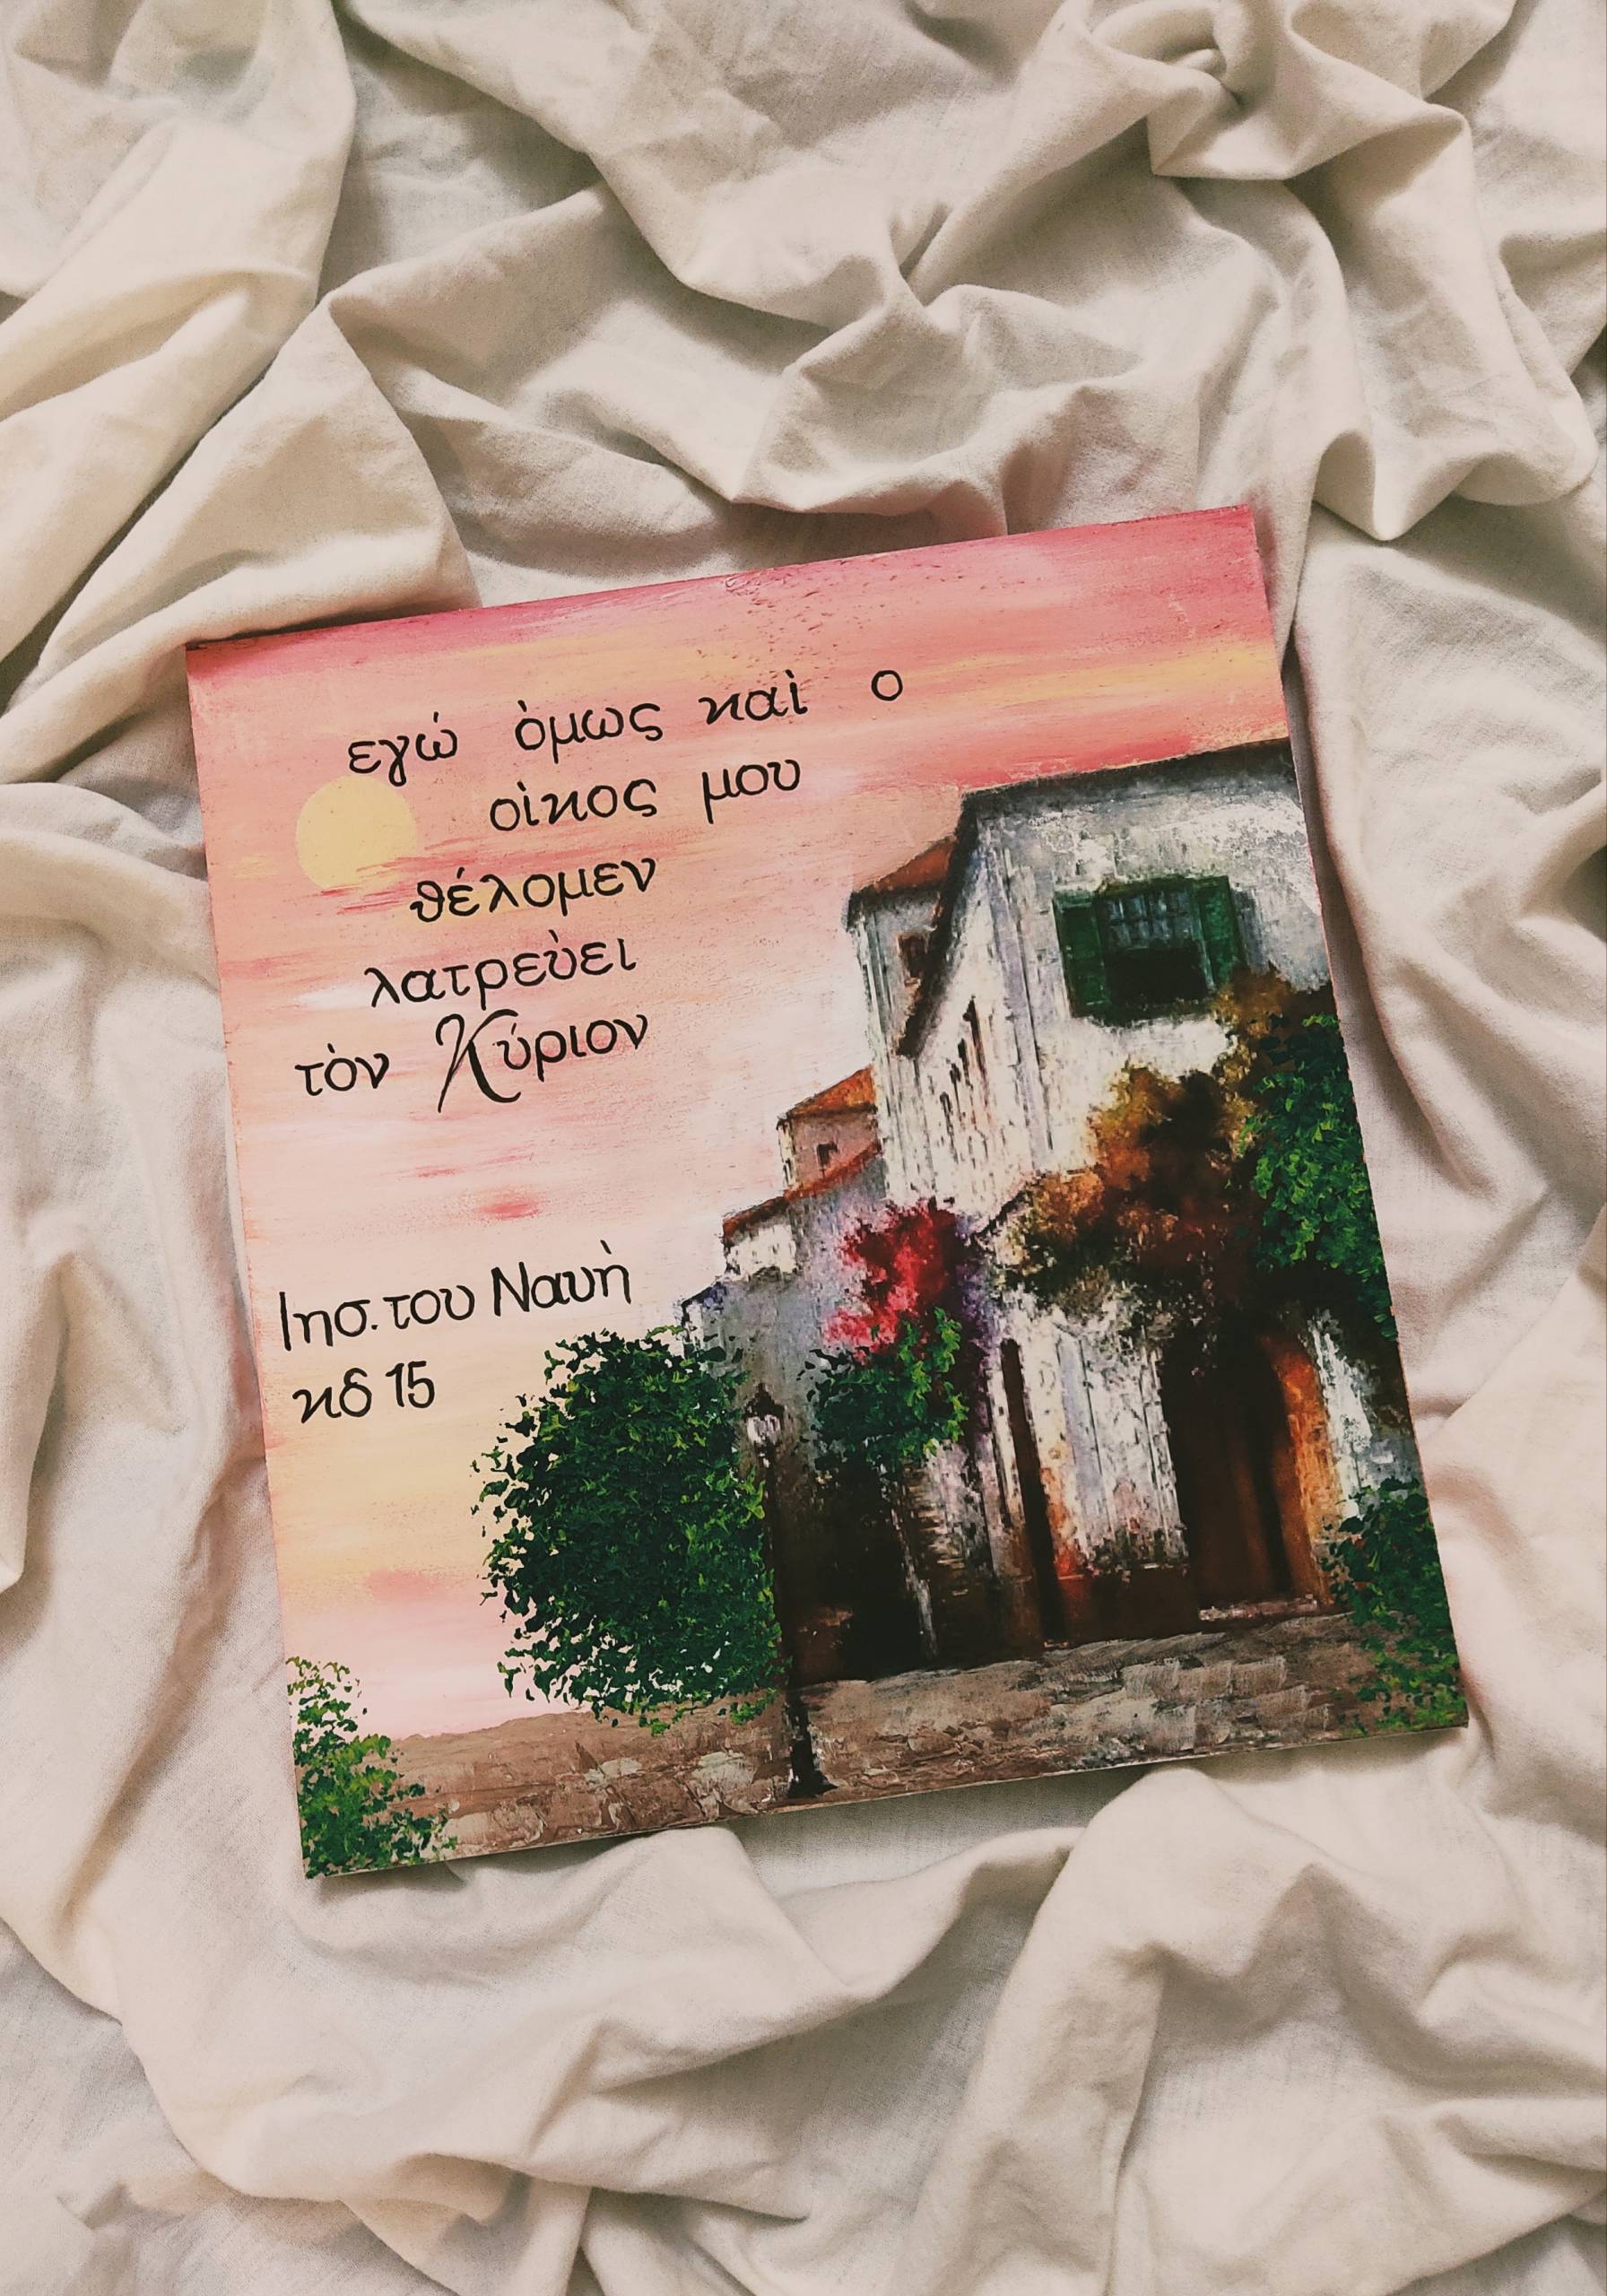 εγώ ὸμως καὶ ο
οὶκος μου
θέλομεν
λατρεὺει
τὸν Κύριον
Ιησ. του Ναυὴ
κδ 15